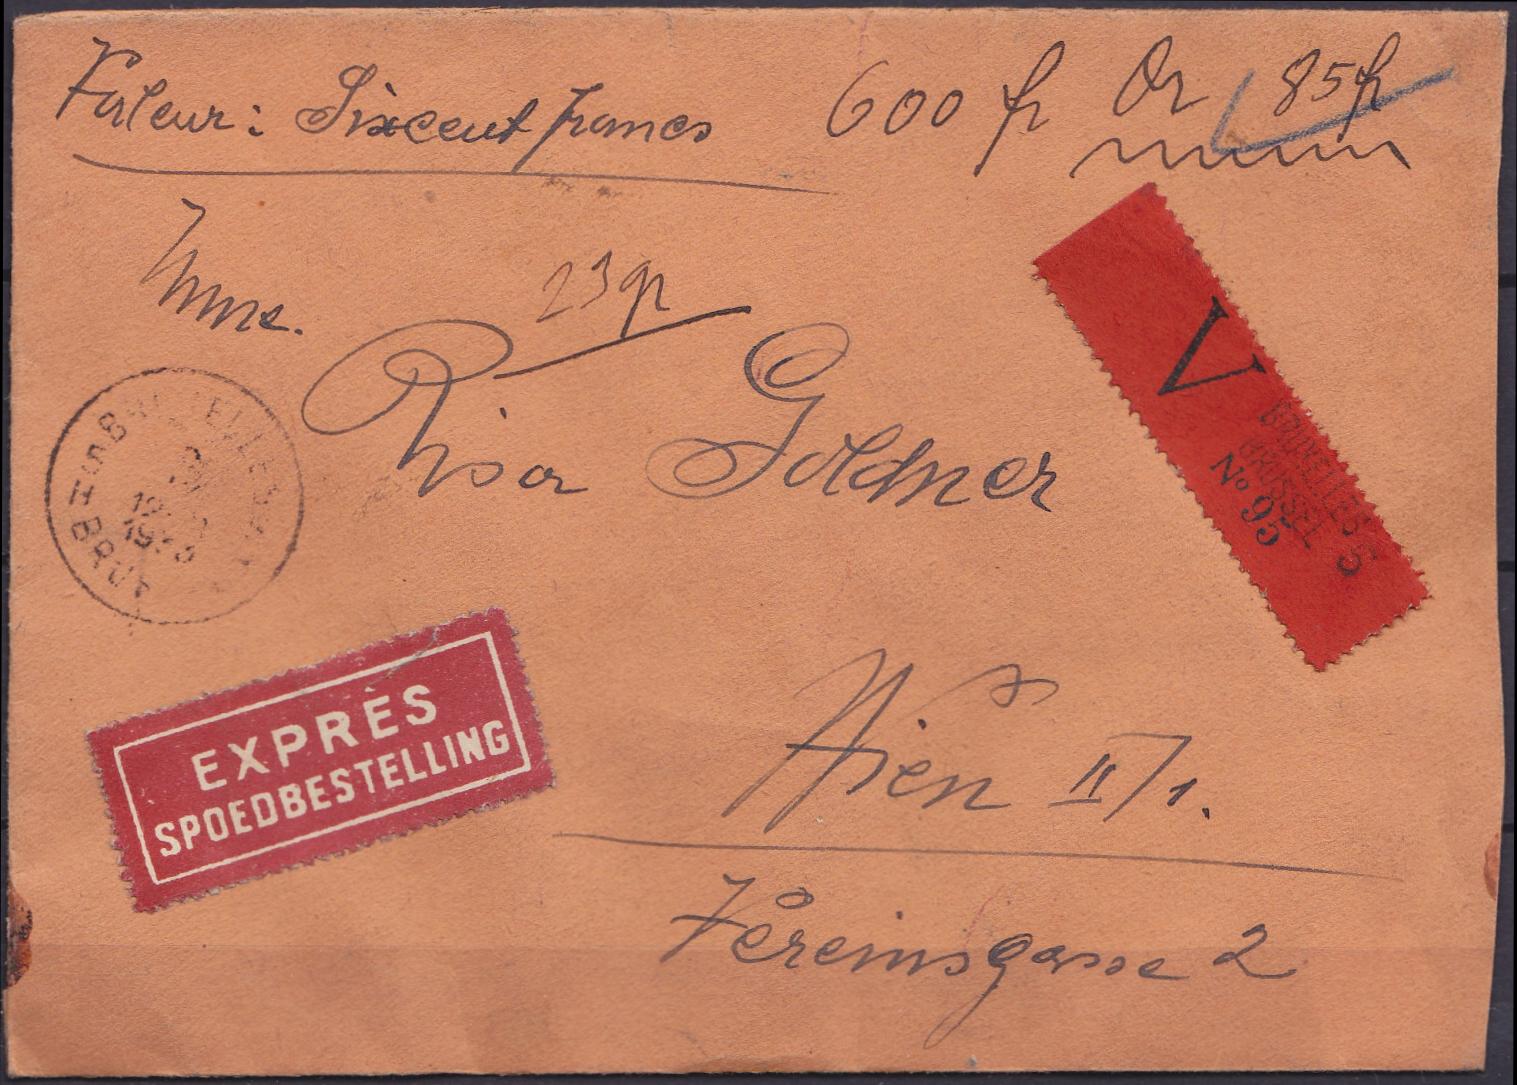 Valeur: Sixcent francs 600 fr Or 85fr
Mme.
23gr
Risa Goldner
V
BRUXELLES 5
BRUSSEL
No 95
EXPRÈS
SPOEDBESTELLING
Wien II/1.
Vereinsgasse 2